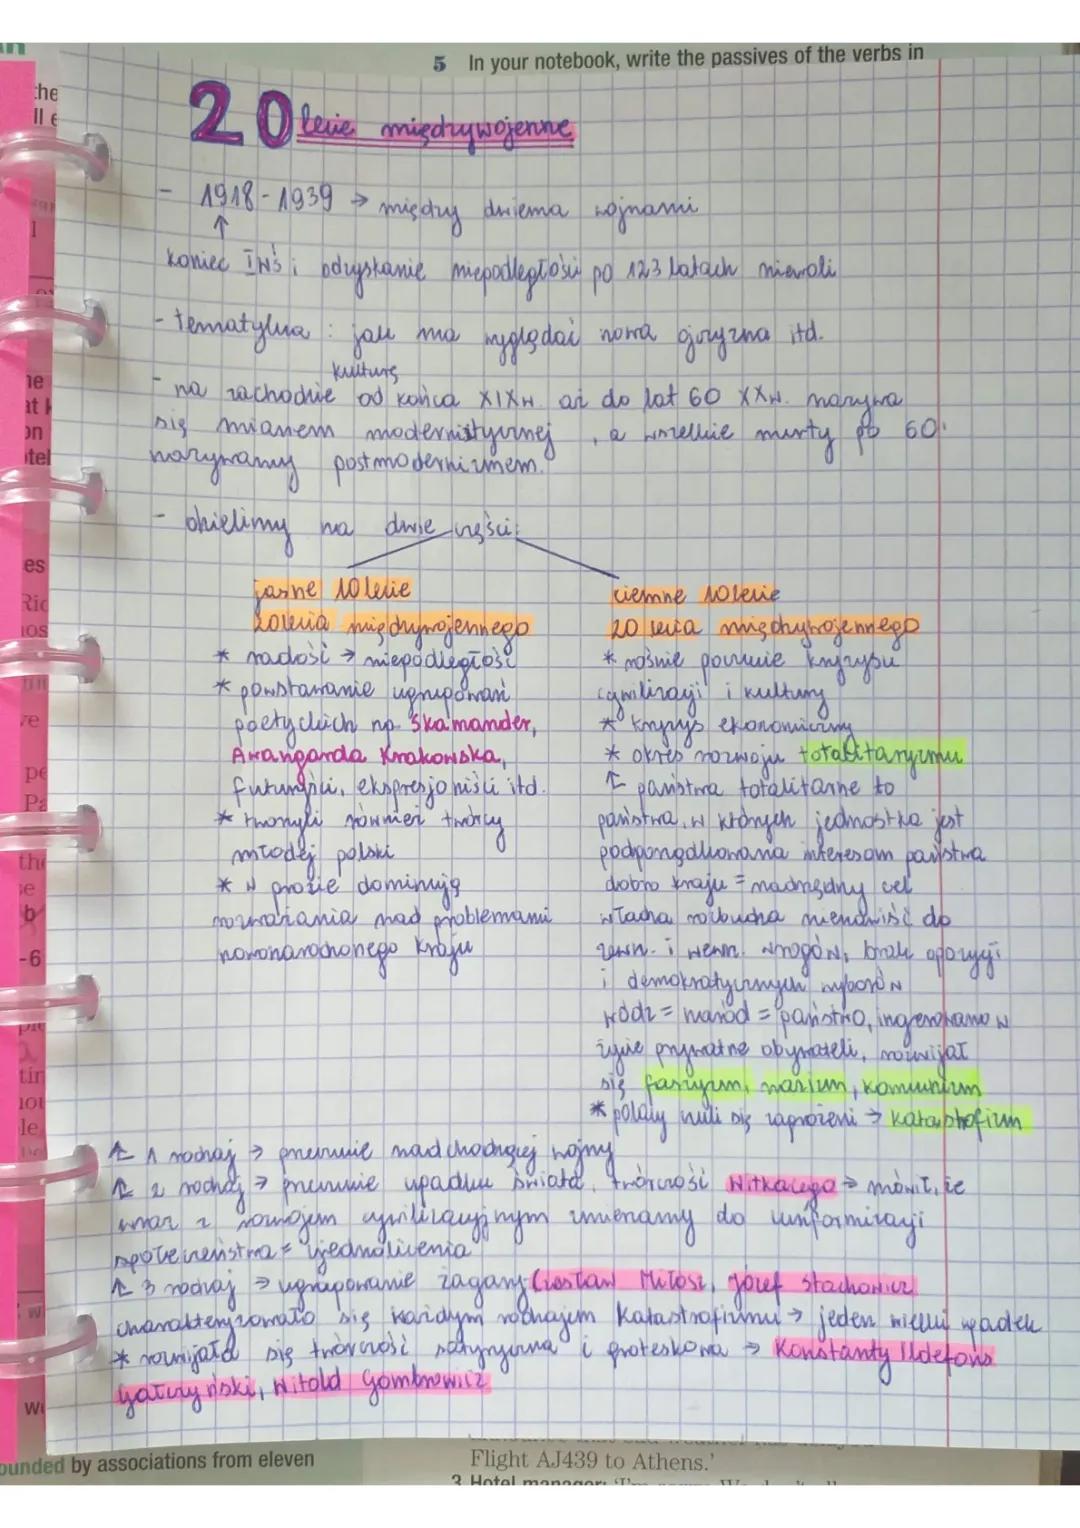 5 In your notebook, write the passives of the verbs in
the
ll e
20lecie międzywojenne
- 1918-1939 → między dwiema wojnami
↑
koniec IWŚ i odzyskanie niepodległości po 123 latach niewoli
- tematyka : jak ma wyglądać nowa ojczyzna itd.
kulturę
- na zachodzie od końca XIXw. aż do lat 60 XXw. nazywa
się mianem modernistycznej, a wszelkie nurty po 60.
nazywamy postmodernizmem.
- dzielimy na dwie części:
jasne 10lecie
20lecia międzywojennego
* radość → niepodległość
* powstawanie ugrupowań
poetyckich np. Skamander,
Awangarda Krakowska,
futuryści, ekspresjoniści itd.
* tworzyli również twórcy
młodej polski
* w prozie dominują
rozważania nad problemami
nowonarodzonego kraju
ciemne 10lecie
20 lecia międzywojennego
* rośnie poczucie kryzysu
cywilizacji i kultury
* kryzys ekonomiczny
* okres rozwoju totalitaryzmu
↑ państwa totalitarne to
państwa, w których jednostka jest
podporządkowana interesom państwa
dobro kraju = nadrzędny cel
władza rozbudza nienawiść do
zewn. i wewn. wrogów, brak opozycji
i demokratycznych wyborów
wódz = naród = państwo, ingerowano w
życie prywatne obywateli, rozwijał
się faszyzm, nazizm, komunizm
* polacy czuli się zagrożeni → katastrofizm
↑ 1 rodzaj → przeczucie nadchodzącej wojny
↑ 2 rodzaj → przeczucie upadku świata, twórczość Witkacego → mówił, że
wraz z rozwojem cywilizacyjnym zmierzamy do uniformizacji
społeczeństwa = ujednolicenia
↑ 3 rodzaj → ugrupowanie żagary (Czesław Miłosz, józef stachowicz
charakteryzowało się każdym rodzajem katastrofizmu → jeden wielki upadek
* rozwijała się twórczość satyryczna i groteskowa → Konstanty Ildefons
gałczyński, Witold gombrowicz
ounded by associations from eleven
Flight AJ439 to Athens.'
3 Hotel manager: